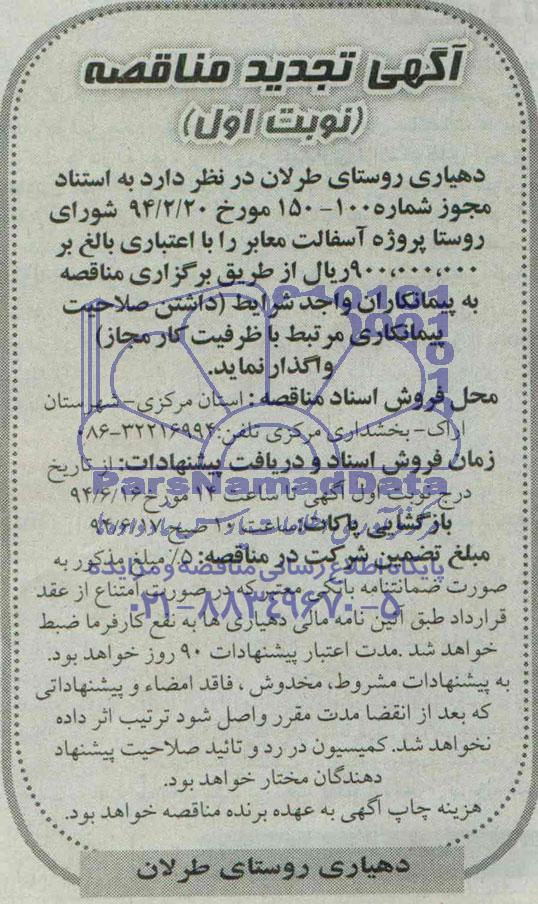 آگهی تجدید مناقصه
(نوبت اول)
دهیاری روستای طرلان در نظر دارد به استناد
مجوز شماره ۱۰۰-۱۵۰ مورخ ۹۴/۲/۲۰ شورای
روستا پروژه آسفالت معابر را با اعتباری بالغ بر
۹۰۰،۰۰۰،۰۰۰ریال از طریق برگزاری مناقصه
به پیمانکاران واجد شرایط (داشتن صلاحیت
پیمانکاری مرتبط با ظرفیت کار مجاز)
واگذار نماید.
محل فروش اسناد مناقصه: استان مرکزی-شهرستان
اراک-بخشداری مرکزی تلفن:۳۲۲۱۶۹۹۴-۰۸۶
زمان فروش اسناد و دریافت پیشنهادات: از تاریخ
درج نوبت اول آگهی تا ساعت ۱۴ مورخ ۹۴/۶/۱۶
بازگشایی پاکات: ساعت ۱۰ صبح ۹۴/۶/۱۷
مبلغ تضمین شرکت در مناقصه: ۵٪ مبلغ مذکور به
صورت ضمانتنامه بانکی معتبر که در صورت امتناع از عقد
قرارداد طبق آئین نامه مالی دهیاری ها به نفع کارفرما ضبط
خواهد شد .مدت اعتبار پیشنهادات ۹۰ روز خواهد بود.
به پیشنهادات مشروط، مخدوش ، فاقد امضاء و پیشنهاداتی
که بعد از انقضا مدت مقرر واصل شود ترتیب اثر داده
نخواهد شد. کمیسیون در رد و تائید صلاحیت پیشنهاد
دهندگان مختار خواهد بود.
هزینه چاپ آگهی به عهده برنده مناقصه خواهد بود.
دهیاری روستای طرلان
ParsNamadData
پایگاه اطلاع رسانی مناقصه و مزایده
۰۲۱-۸۸۳۴۹۶۷۰-۵